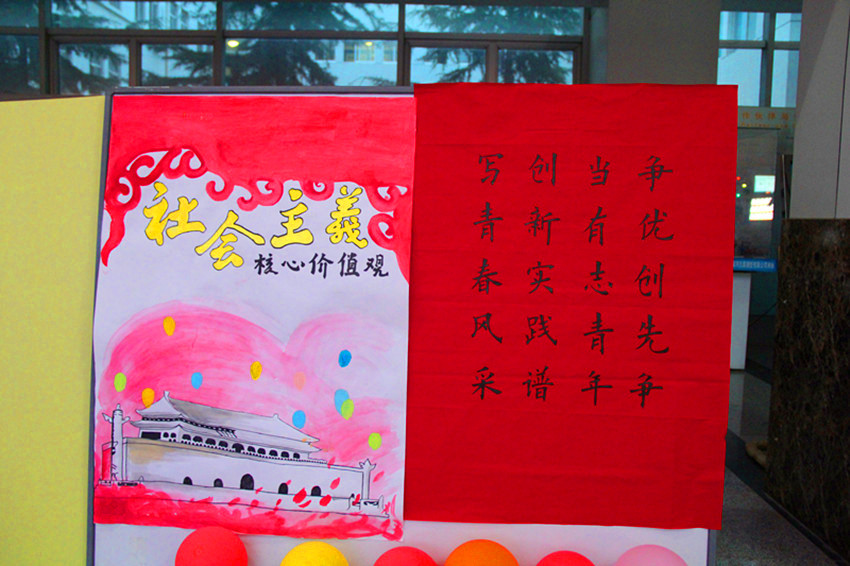 社会主義
核心价值观
争优创先争
当有志青年
创新实践谱
写青春风采